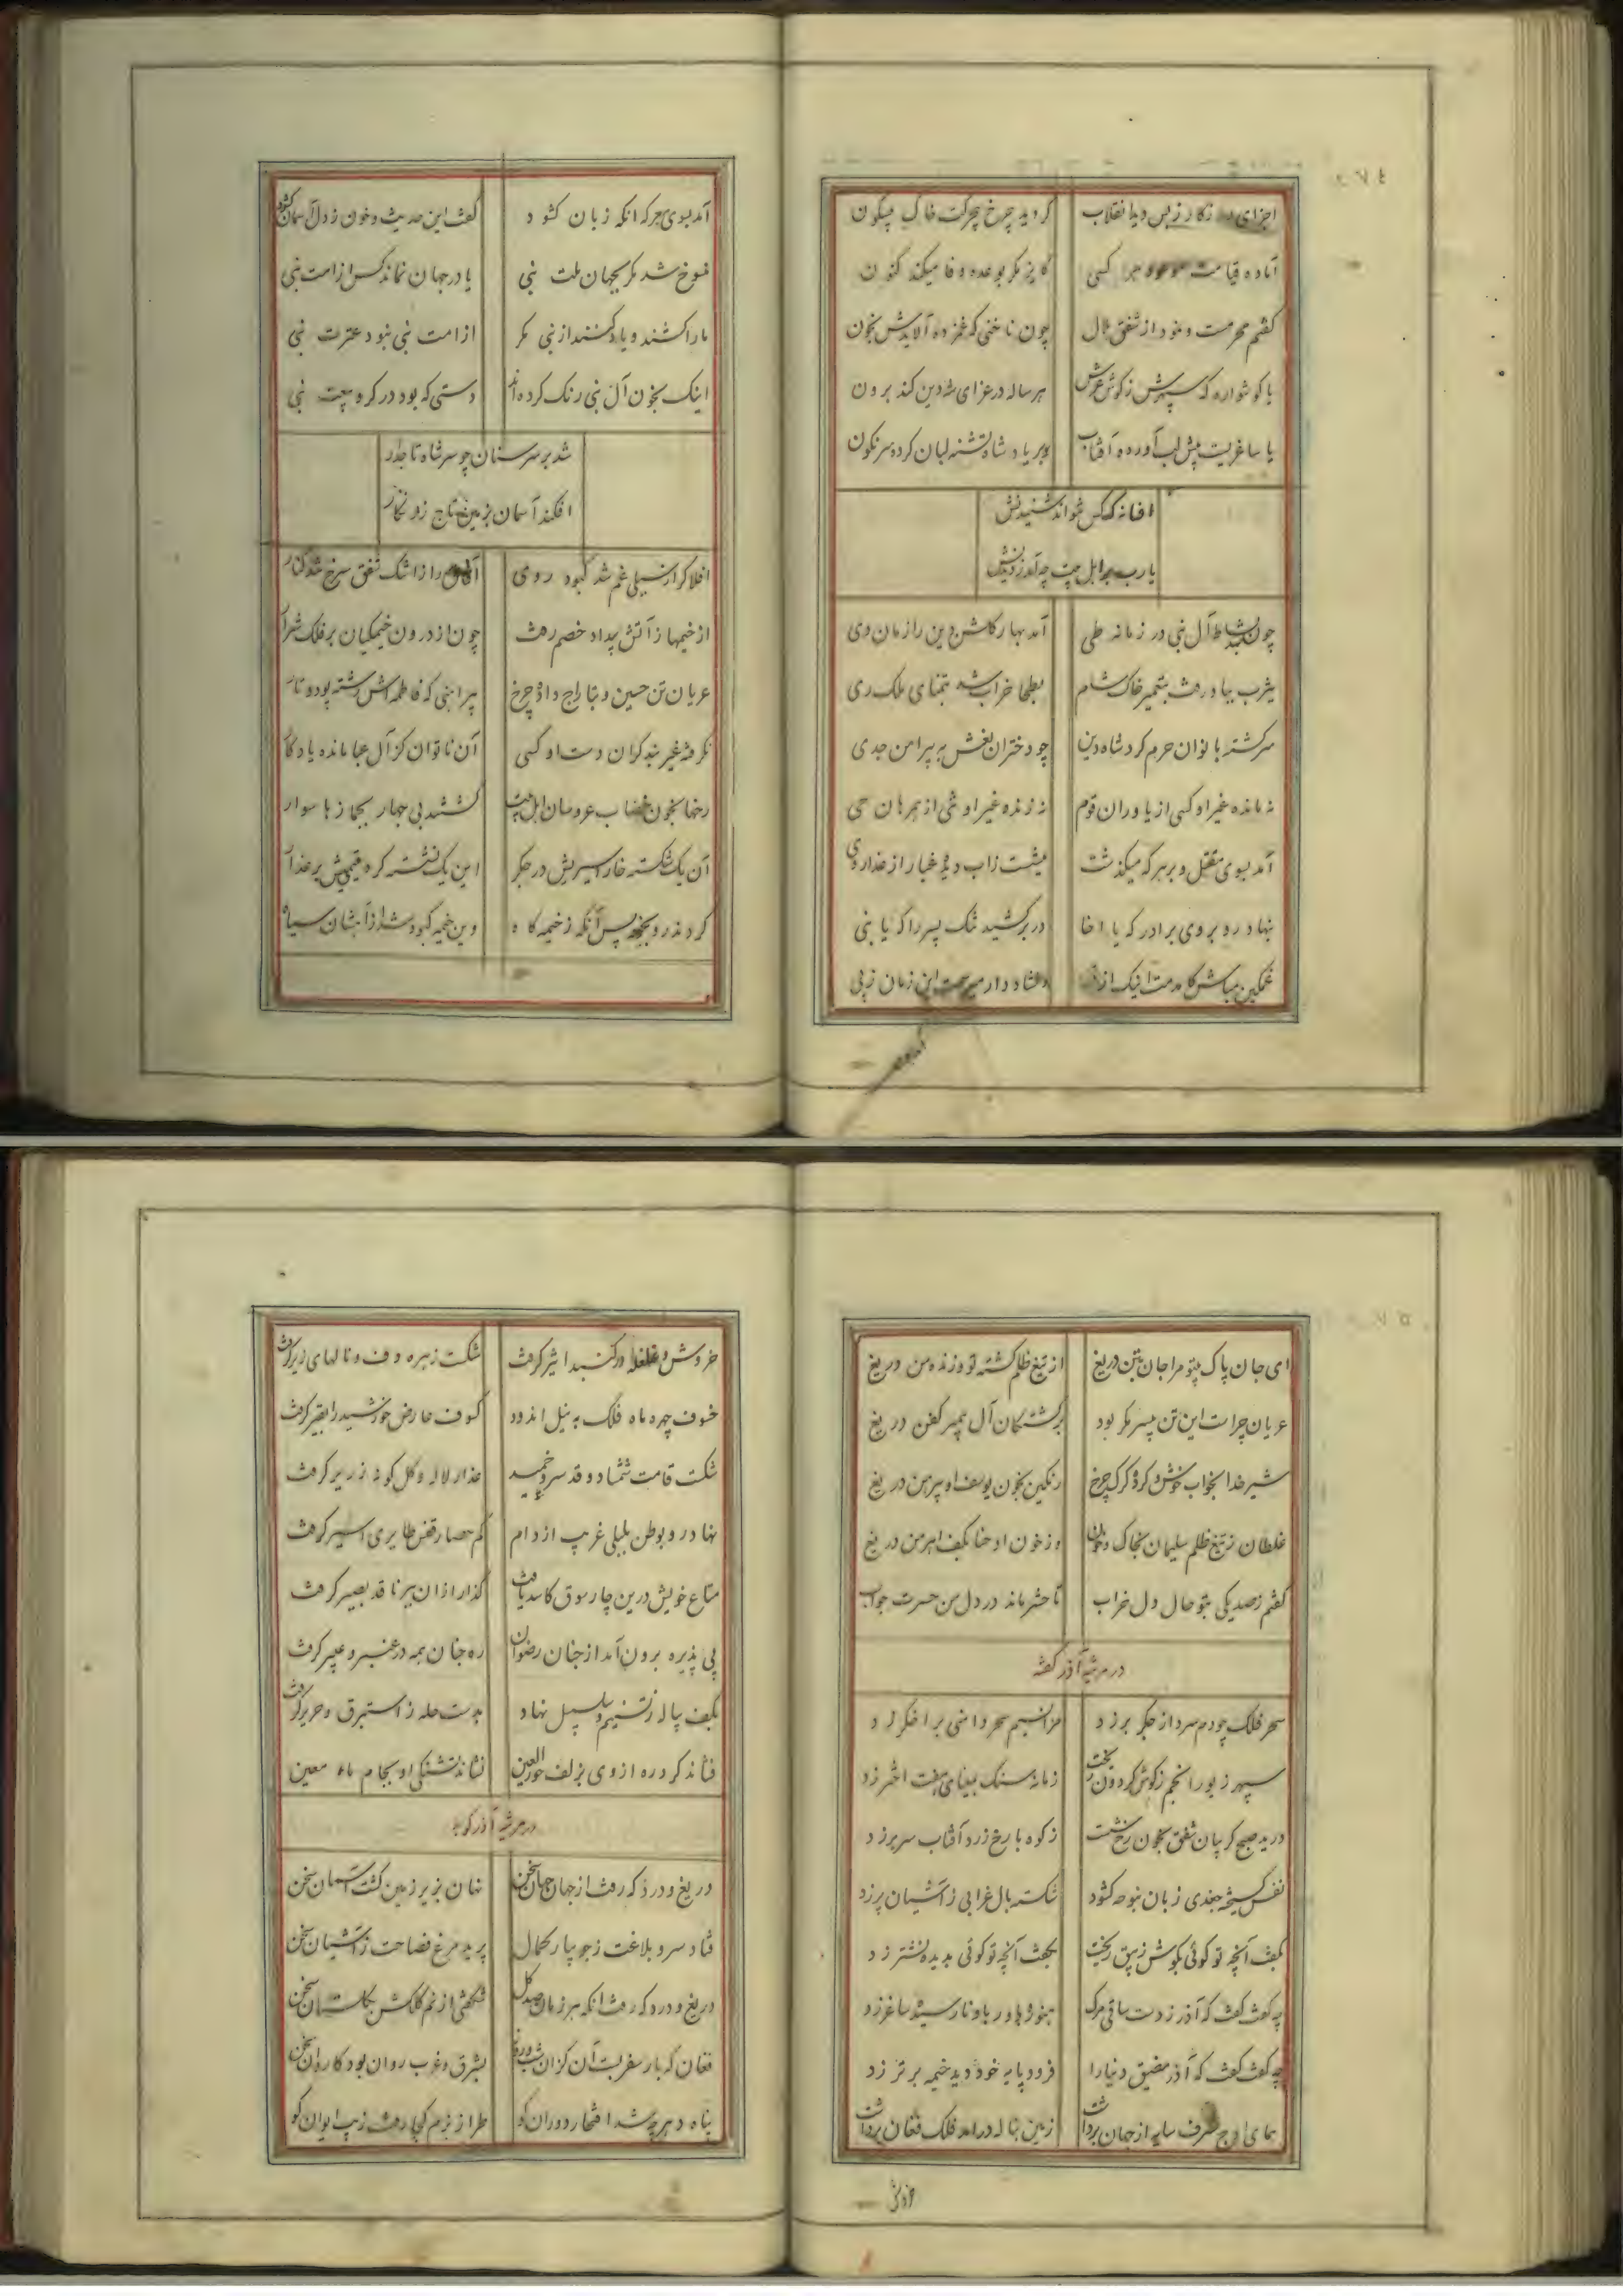 اجزای روزکار زبس دید انقلاب کردید چرخ بی حرکت خاک بیسکون
آماده قیامت موعود هر کسی کایزد مکر بوعده وفا میکند کنون
کفتم محرمست و نمود از شفق هلال چون ناخنی که غمزده آلایدش بخون
یا کوشواره که سپهرش ز کوش عرش هر ساله در عزای شه دین کند برون
یا ساغریست پیش لب آورده آفتاب بر یاد شاه تشنه لبان کرده سرنکون
افسانه که کس نتواند شنیدنش
یا رب بر اهل بیت چه آمد ز دیدنش
چون شد بساط آل نبی در زمانه طی آمد بهار کلشن دین را زمان دی
یثرب بباد رفت بتعمیر خاک شام بطحا خراب شد بتمنای ملک ری
سرکشته بانوان حرم کرد شاه دین چو دختران نعش به پیرامن جدی
نه مانده غیر او کسی از یاوران قوم نه زنده غیر او شی از همرهان حی
آمد بسوی مقتل و بر هر که میکذشت میشست ز آب دیده غبار از عذار وی
بنهاد رو بروی برادر که یا اخا در بر کشید تنک پسر را که یا بنی
غمکین مباش کامدمت اینک از قفا دلشاد دار میرسمت این زمان ز پی
آمد بسوی هر که آنکه زبان کشود کفت این حدیث و خون ز دل آسمان کشود
منسوخ شد مکر بجهان ملت نبی یا در جهان نماند کس از امت نبی
ما را کشند و یاد کنند از نبی مکر از امت نبی نبود عترت نبی
اینک بخون آل نبی رنک کرده‌اند دستی که بود در کرو بیعت نبی
شد بر سر سنان چو سر شاه تاجدار
افکند آسمان بزمین تاج زرنکار
افلاک را ز سیلی غم شد کبود روی آفاق را ز اشک شفق سرخ شد کنار
از خیمها ز آتش بیداد خصم رفت چون از درون خیمکیان بر فلک شرار
عریان تن حسین و بتاراج داد چرخ پیراهنی که فاطمه‌اش رشته پود و تار
نکرفته غیر بند کران دست او کسی آن ناتوان کز آل عبا مانده یادکار
رخها بخون خضاب عروسان اهل بیت کشتند بی جهاز بجمازها سوار
آن یک شکسته خار اسیریش در جکر این یک نشسته کرد یتیمیش بر عذار
کردند رو بخیمه پس آنکه ز خیمه‌کاه وین خیمه کبود شد از آهشان سیاه
ای جان پاک بیتو مرا جان بتن دریغ از تیغ ظلم کشته تو و زنده من دریغ
عریان چراست این تن بیسر مکر بود بر کشتکان آل پیمبر کفن دریغ
شیر خدا بخواب خوش و کرده کرک چرخ رنکین بخون یوسف او پیرهن دریغ
غلطان ز تیغ ظلم سلیمان بخاک و خون وز خون او حنا بکف اهرمن دریغ
کفتم ز صد یکی بتو حال دل خراب تا حشر ماند در دل من حسرت جواب
در مرثیه آذر کفته
سحر فلک چو دم سرد از جکر بر زد هزار نسیم سحر دامنی بر اخکر زد
سپهر زیور انجم ز کوش کردون ریخت زمانه سنک بمینای هفت اختر زد
درید صبح کریبان شفق بخون رخ شست ز کوه با رخ زرد آفتاب سر بر زد
نفس کسیخته جغدی زبان بنوحه کشود شکسته بال غرابی ز آشیان پر زد
بکفت آنچه تو کوئی بکوش زیبق ریخت بکفت آنچه تو کوئی بدیده نشتر زد
چه کفت کفت که آذر ز دست ساقی مرک هنوز باور یاد نارسیده ساغر زد
چه کفت کفت که آذر مضیق دنیا را فرود پایه خود دید خیمه برتر زد
همای اوج شرف سایه از جهان برداشت زمین بناله درآمد فلک فغان برداشت
خروش
خروش و غلغله در کنبد اثیر کرفت شکست زهره دف و نالهای زیر کرفت
خسوف چهره ماه فلک به نیل اندود کسوف عارض خورشید را بقیر کرفت
شکست قامت شمشاد و قد سرو خمید عذار لاله و کل کونه زریر کرفت
نهاد رو بوطن بلبلی غریب از دام کم حصار قفس طایری اسیر کرفت
متاع خویش درین چارسوق کاسد یافت کذار از آن بر ناقد بصیر کرفت
پی پذیره برون آمد از جنان رضوان ره جنان همه در عنبر و عبیر کرفت
بکف پیاله ز تسنیم و سلسبیل نهاد بدست حله ز استبرق و حریر کرفت
فشاند کرد ره از وی بزلف حورالعین نشاند تشنکی او بجام ماء معین
در مرثیه آذر کوید
دریغ و درد که رفت از جهان جهان سخن نهان بزیر زمین کشت آسمان سخن
فتاد سرو بلاغت ز جویبار کمال پرید مرغ فصاحت ز آشیان سخن
دریغ و درد که رفت آنکه هر زمان صد کل شکفتی از نم کلکش بکلستان سخن
فغان که بار سفر بست آن کز آن شب و روز بشرق و غرب روان بود کاروان سخن
پناه دهر چه شد افتخار دوران کو طراز بزم کجا رفت زیب ایوان کو